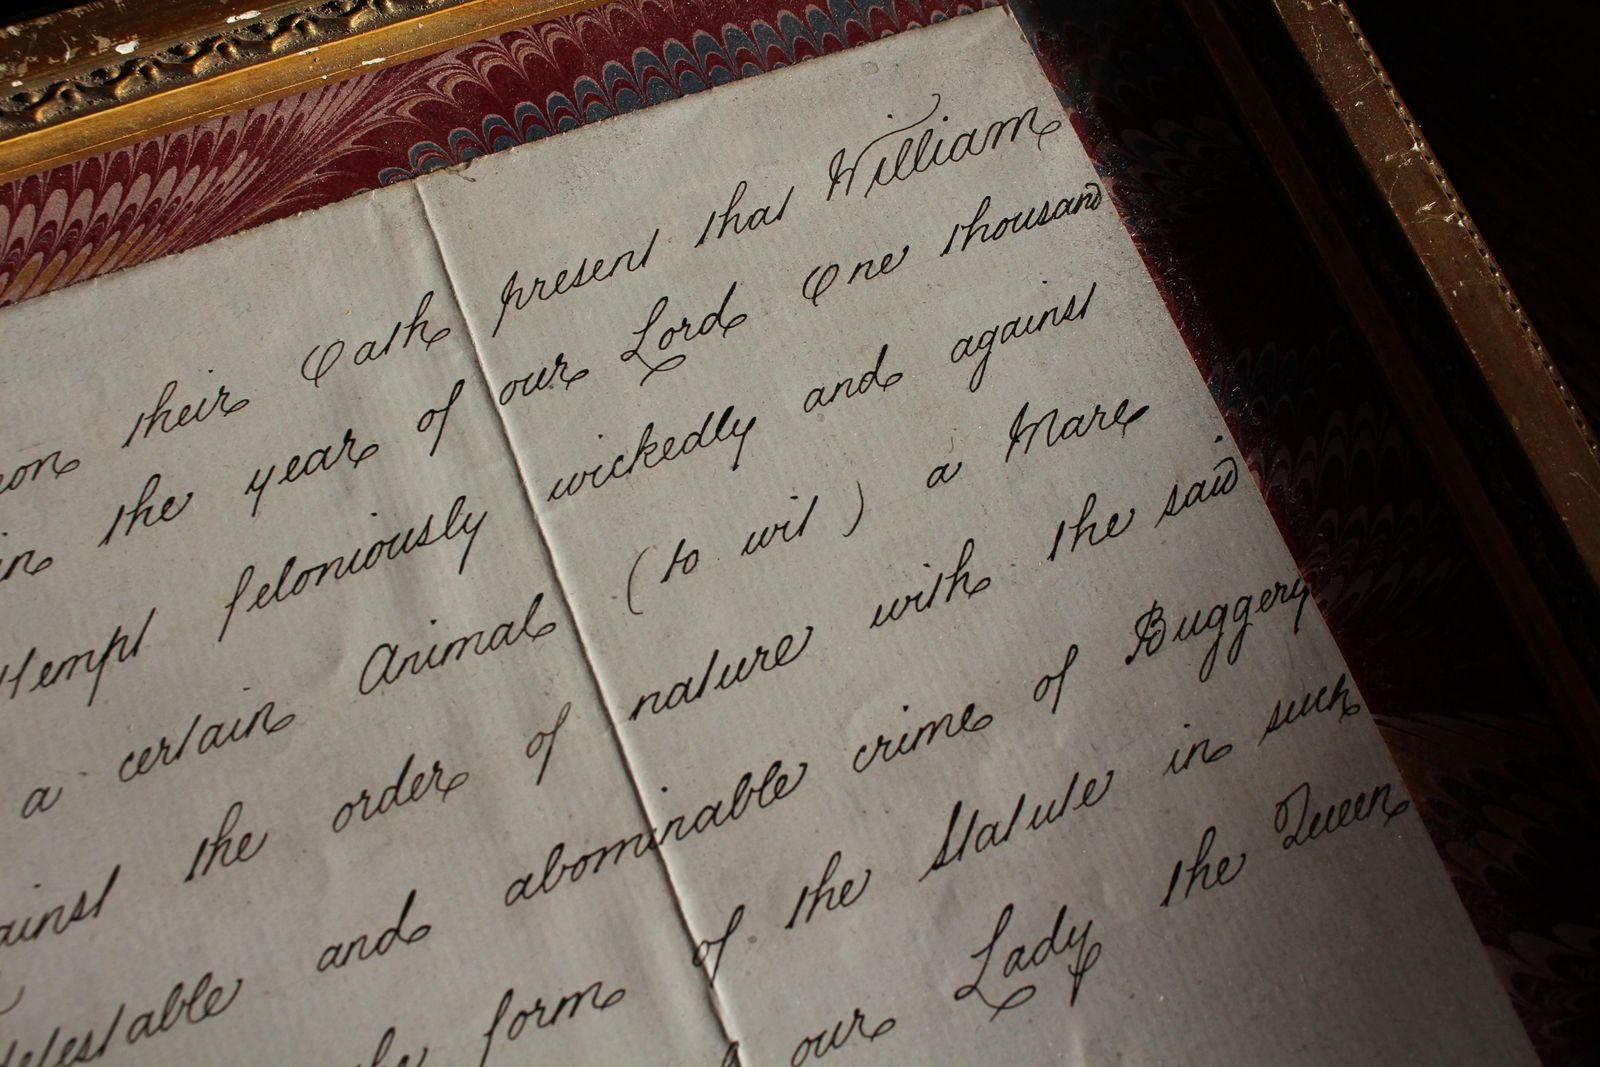 their Oath present that William
the year of our Lord One thousand
feloniously wickedly and against
a certain Animal (to wit) a Mare
the order of nature with the said
and abominable crime of Buggery
form of the Statute in such
our Lady the Queen